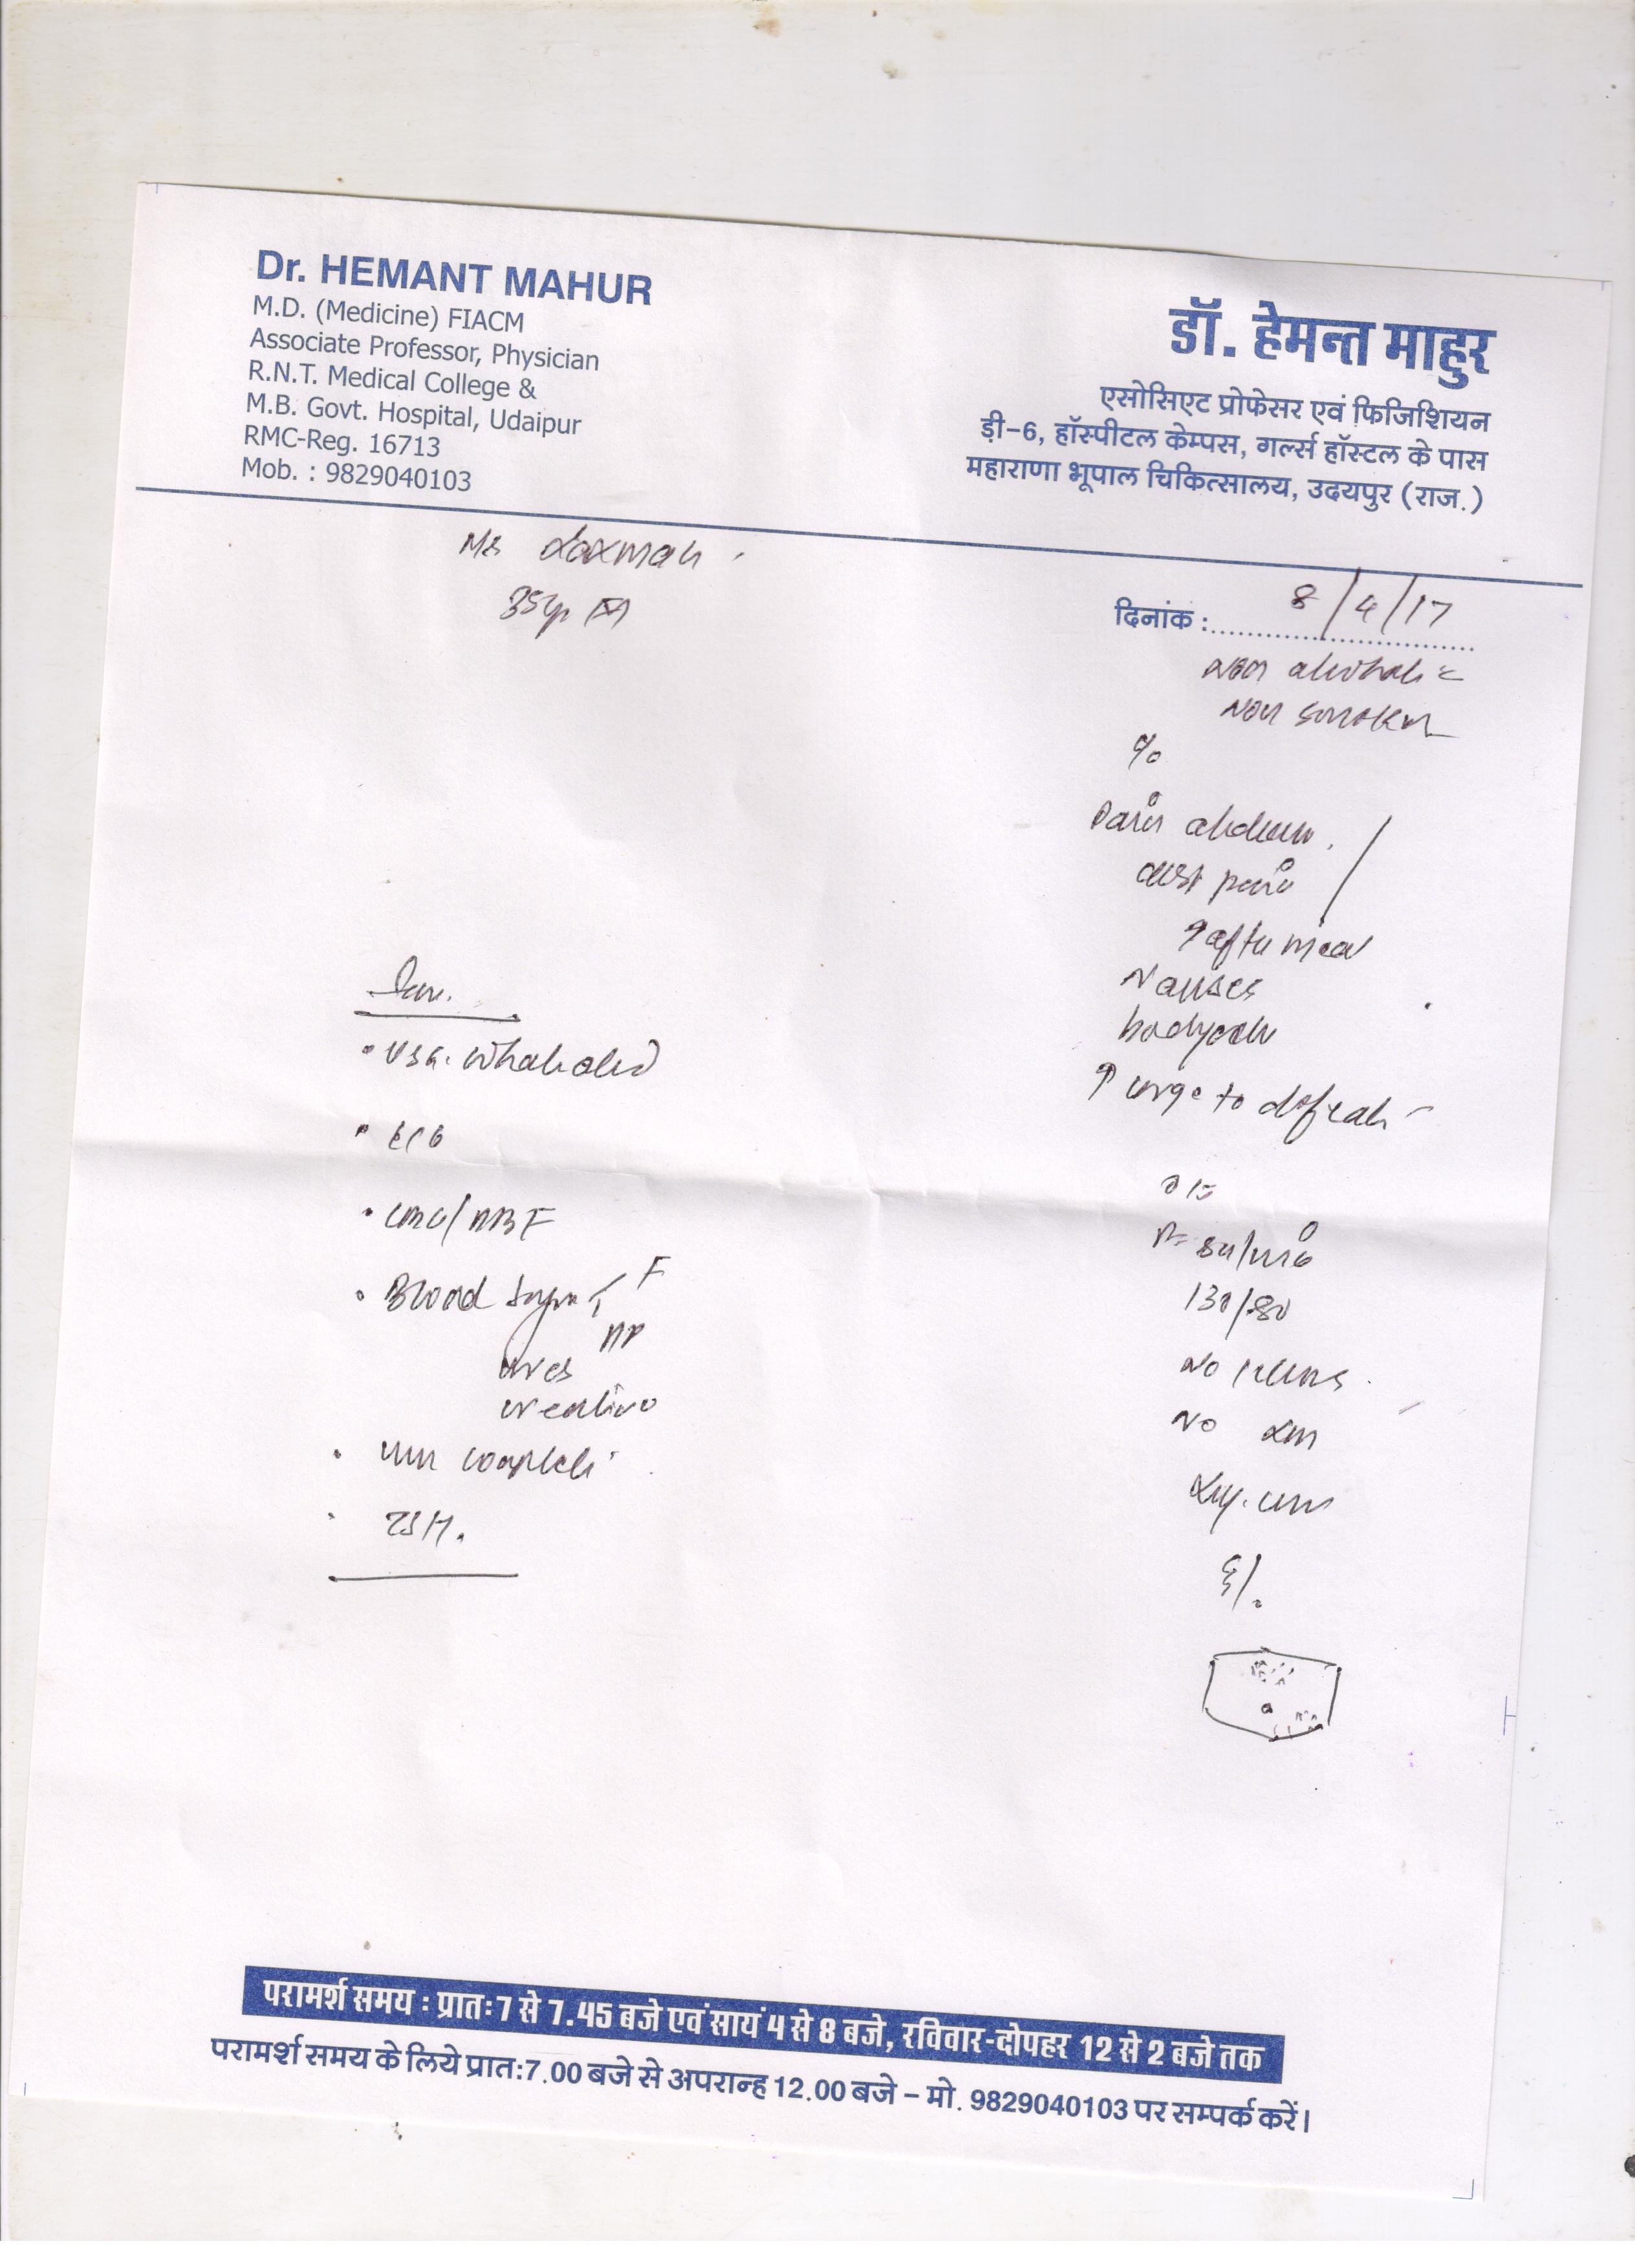 Dr. HEMANT MAHUR
M.D. (Medicine) FIACM
Associate Professor, Physician
R.N.T. Medical College &
M.B. Govt. Hospital, Udaipur
RMC-Reg. 16713
Mob. : 9829040103
डॉ. हेमन्त माहुर
एसोसिएट प्रोफेसर एवं फिजिशियन
ड़ी-6, हॉस्पीटल केम्पस, गर्ल्स हॉस्टल के पास
महाराणा भूपाल चिकित्सालय, उदयपुर (राज.)
Mr Laxman
35y
दिनांक : 8/4/17
Non alcoholic
Non smoker
Pain abdomen
chest pain
↑ after meal
Nausea
bodyache
↑ urge to defecate
O/E
130/80
NO
NO LN
Inv.
• USG. Whole abd
• ECG
• CBC/MBF
• Blood sugar F
PP
urea
creatinine
• urine complete
• TSH.
परामर्श समय : प्रातः 7 से 7.45 बजे एवं सायं 4 से 8 बजे, रविवार-दोपहर 12 से 2 बजे तक
परामर्श समय के लिये प्रात:7.00 बजे से अपरान्ह 12.00 बजे – मो. 9829040103 पर सम्पर्क करें।